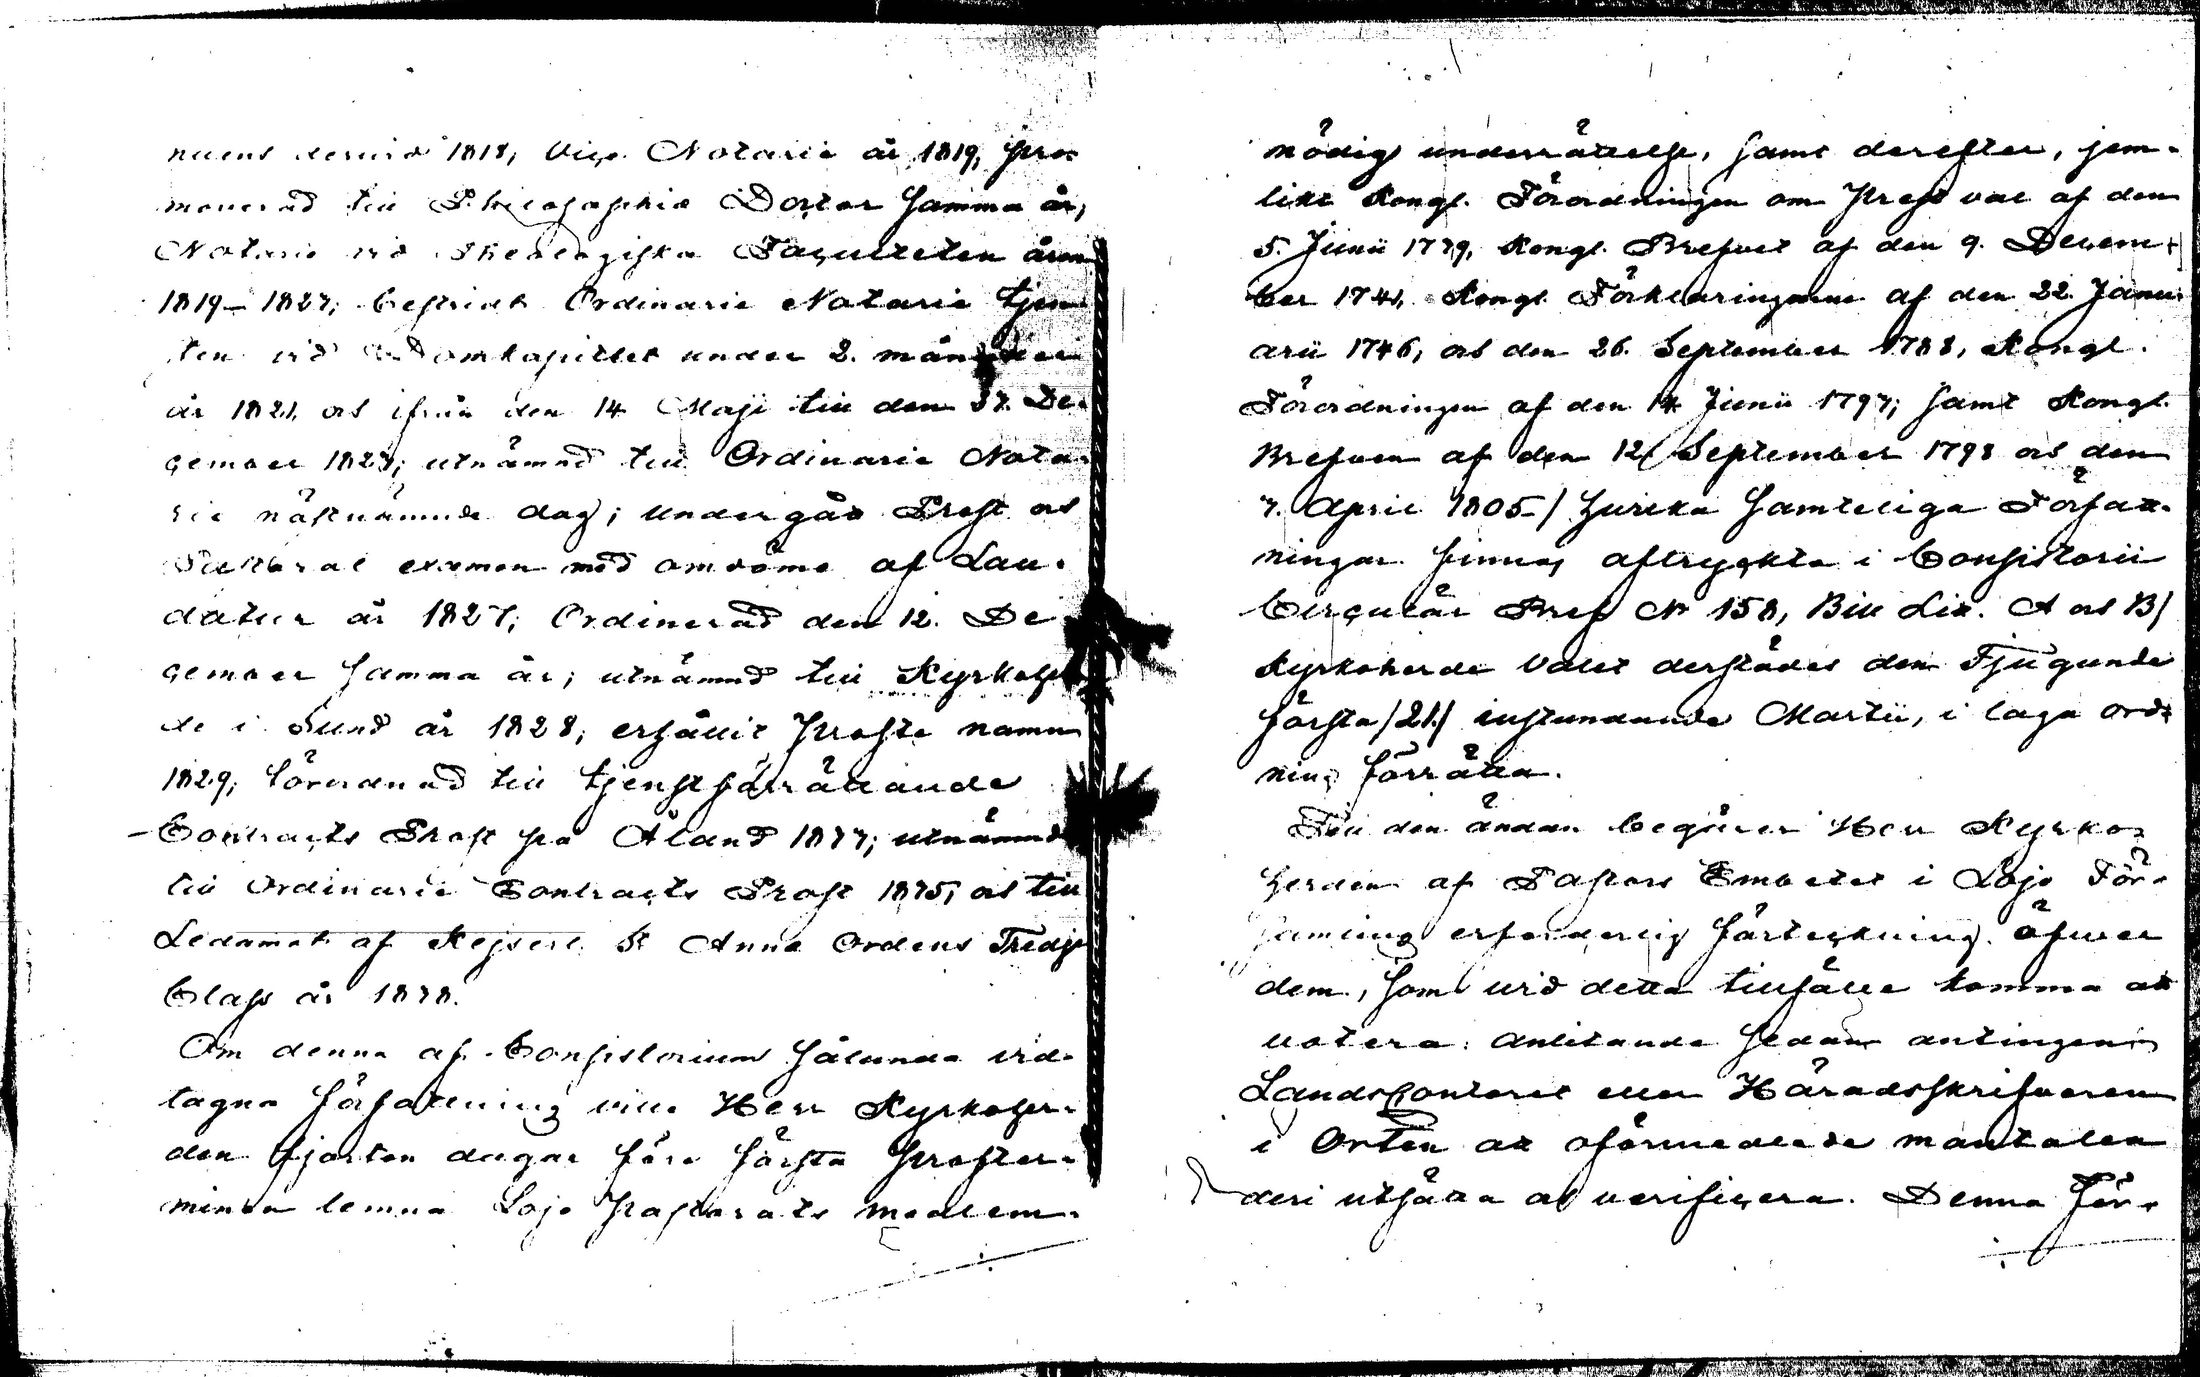 nuens dervid 1818, Vice Notarie år 1819, pro-
moverad till Philosophiæ Doctor samma år,
Notarie vid Theologiska Faculteten åren
1819–1827; bestridt Ordinarie Notarie tjen-
sten vid Domkapitlet under 2. månader
år 1821, och ifrån den 14 Maji till den 31. De-
cember 1827; utnämnd till Ordinarie Nota-
rie nästnämnde dag; undergåd Prest och
Pastoral examen med omdöme af Lau-
datur år 1827; Ordinerad den 12. De-
cember samma år; utnämnd till Kyrkoher-
de i Sund år 1828; erhållit Proste namn
1829; förordnad till tjenstförrättande
Contracts Prost på Åland 1833; utnämnd
till Ordinarie Contracts Prost 1835; och till
Ledamot af Kejserl. St Annæ Ordens Tredje
Class år 1838.
Om denna af Consistorium sålunda vid-
tagna författning ville Herr Kyrkoher-
den fjorton dagar före första profter-
minen lemna Lojo Pastorats medlem-
nödig underrättelse, samt derefter, jem-
likt Kongl. Förordningen om Prest val af den
5. Junii 1739, Kongl. Brefvet af den 9. Decem-
ber 1741, Kongl. Förklaringarne af den 22. Janu-
arii 1746, och den 26. September 1783, Kongl.
Förordningen af den 14 Junii 1797; samt Kongl.
Brefven af den 12 September 1798 och den
7. April 1805 /hvilka samteliga Författ-
ningar finnas aftryckta i Consistorii
Circulär Bref No 158, Bil. Litt. A och B/
Kyrkoherde valet derstädes den Tjugunde
första /21./ instundande Martii, i laga ord-
ning förrätta.
Till den ändan begärer Herr Kyrko-
herden af Pastors Embetet i Lojo För-
samling erforderlig förteckning öfver
dem, som vid detta tillfälle komma att
votera: anlitande sedan antingen
Landscontoret eller Häradsskrifvaren
i Orten att oförmedlade mantalen
deri utsätta och verificera. Denna För-